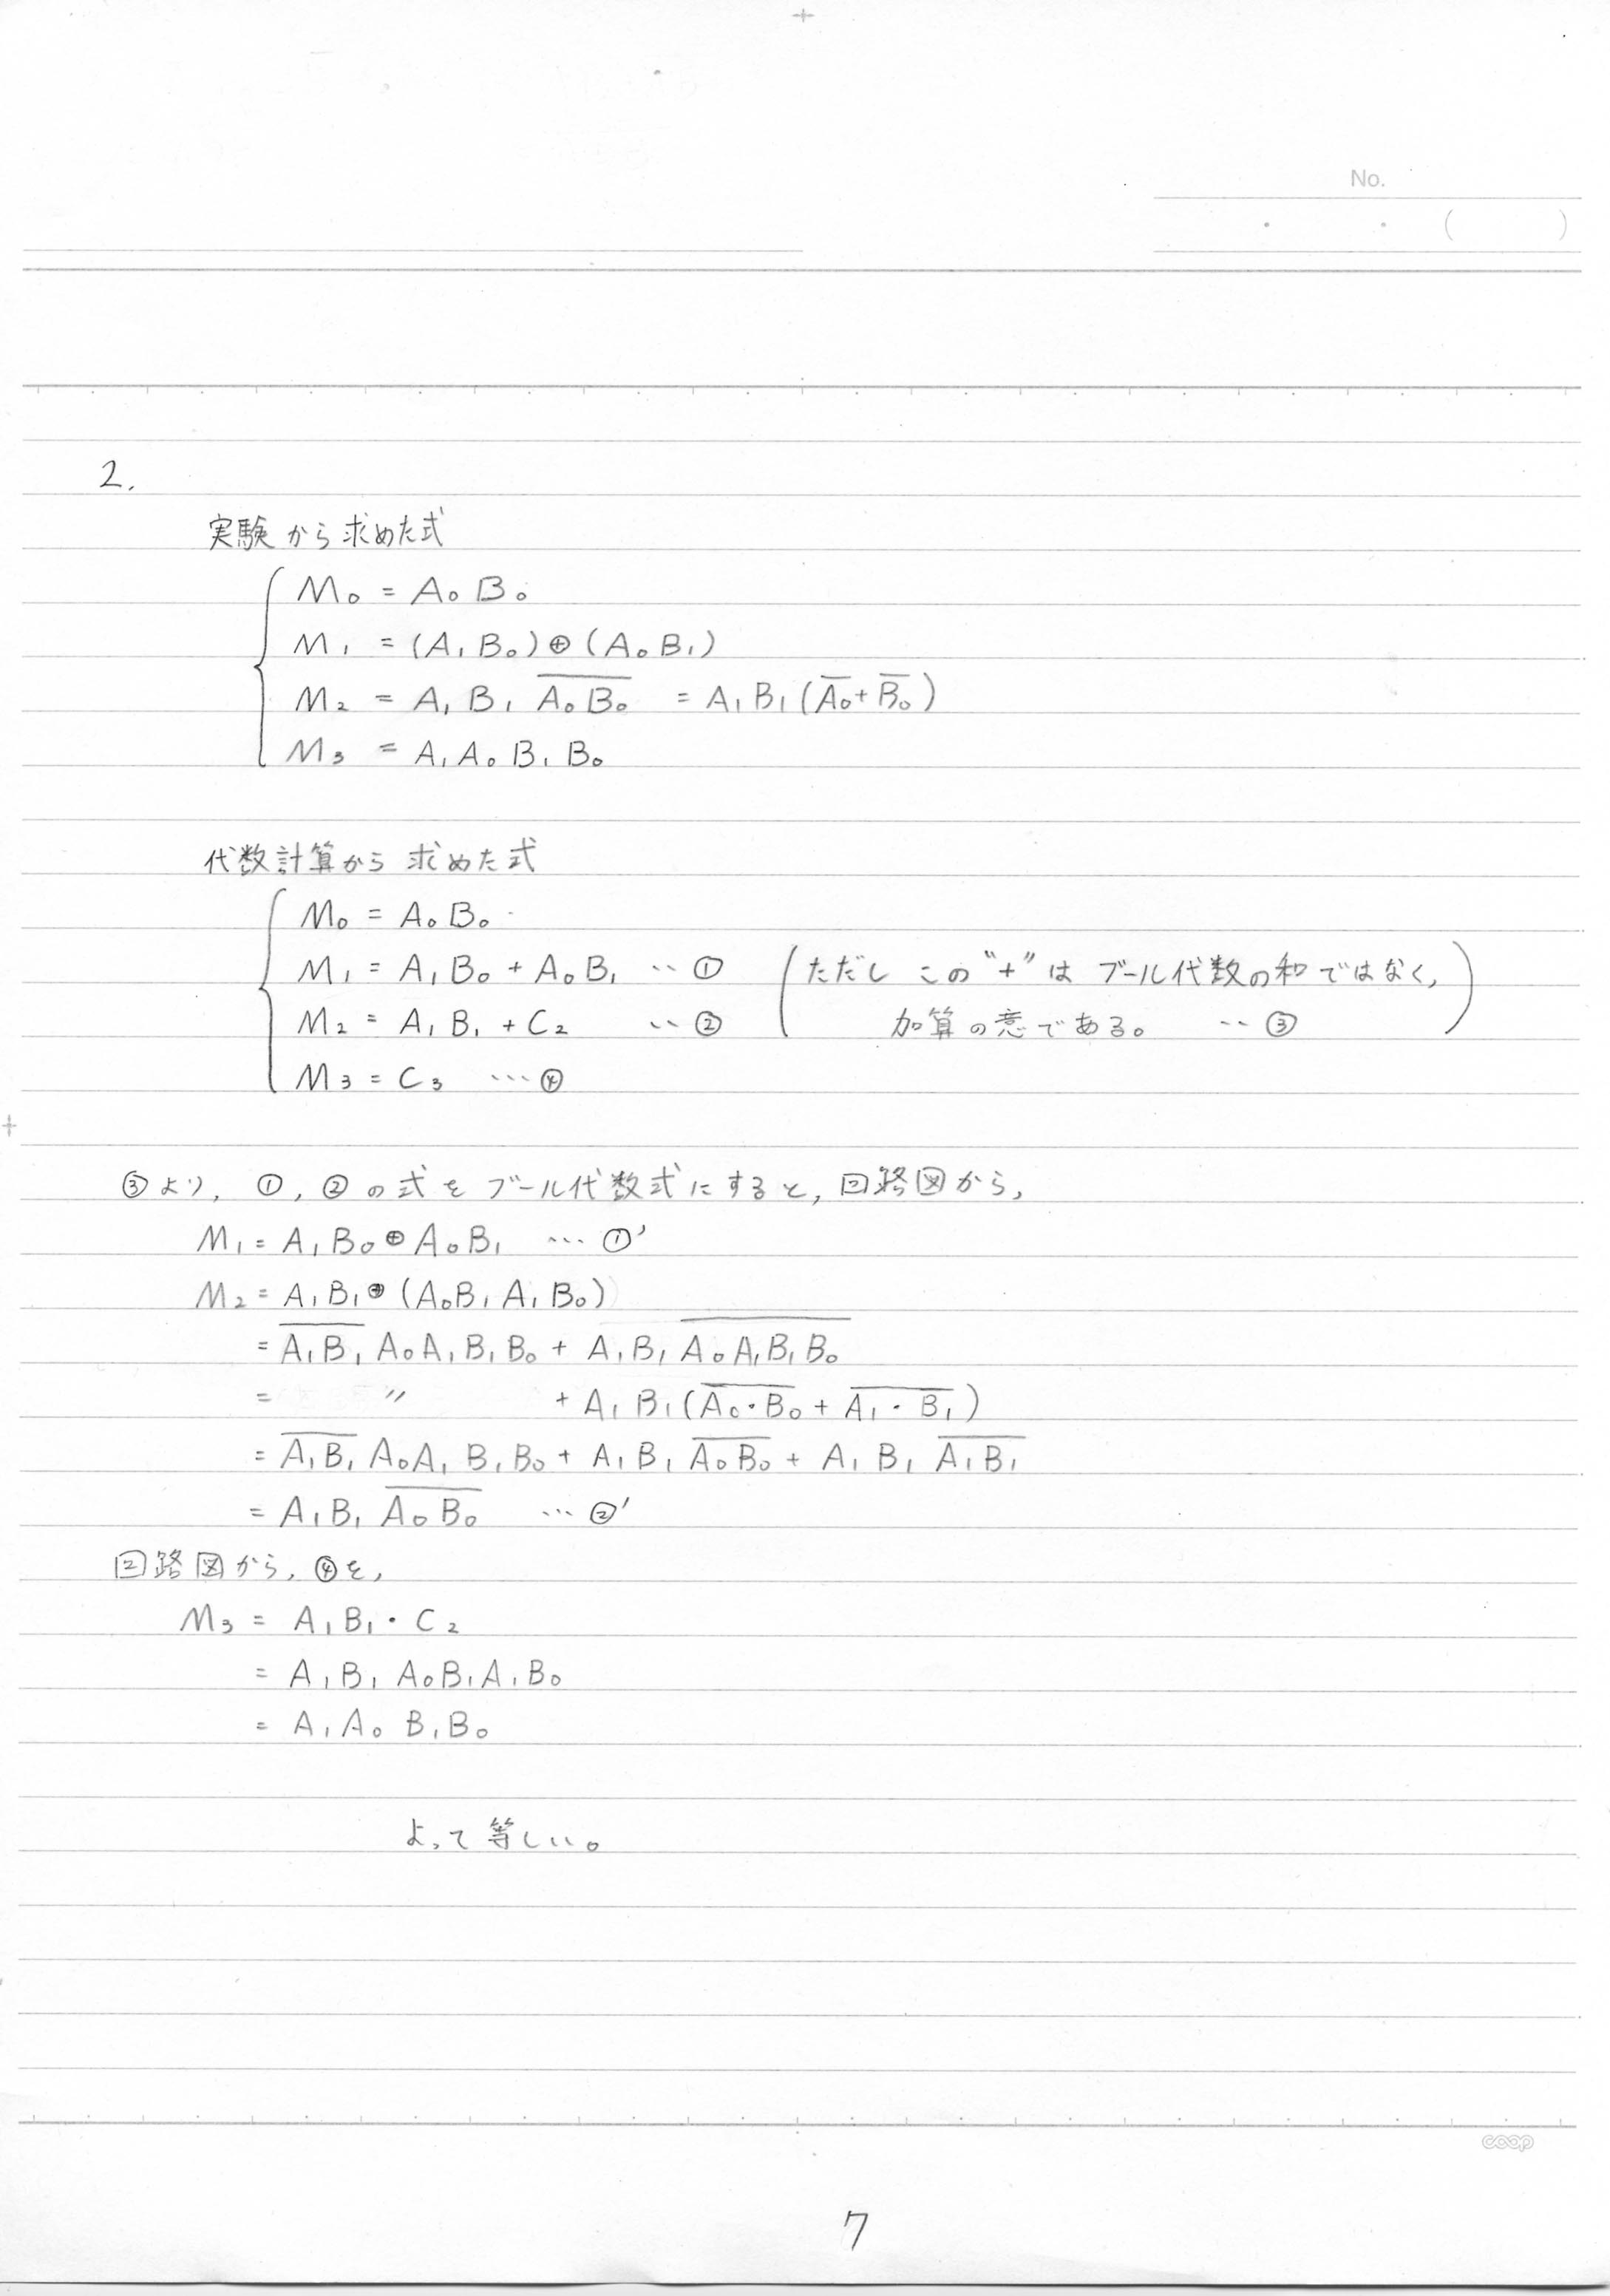 No.
( )
2.
実験から求めた式
M₀ = A₀ B₀
M₁ = (A₁ B₀) ⊕ (A₀ B₁)
M₂ = A₁ B₁ \overline{A₀ B₀} = A₁ B₁ (\overline{A₀} + \overline{B₀})
M₃ = A₁ A₀ B₁ B₀
代数計算から求めた式
M₀ = A₀ B₀
M₁ = A₁ B₀ + A₀ B₁ ‥ ① (ただし この "+" は ブール代数の和ではなく,
M₂ = A₁ B₁ + C₂ ‥ ② 加算の意である。 ‥ ③)
M₃ = C₃ … ④
③より, ①, ② の式を ブール代数式にすると, 回路図から,
M₁ = A₁ B₀ ⊕ A₀ B₁ … ①'
M₂ = A₁ B₁ ⊕ (A₀ B₁ A₁ B₀)
= \overline{A₁ B₁} A₀ A₁ B₁ B₀ + A₁ B₁ \overline{A₀ A₁ B₁ B₀}
= 〃 + A₁ B₁ (\overline{A₀・B₀} + \overline{A₁・B₁})
= \overline{A₁ B₁} A₀ A₁ B₁ B₀ + A₁ B₁ \overline{A₀ B₀} + A₁ B₁ \overline{A₁ B₁}
= A₁ B₁ \overline{A₀ B₀} … ②'
回路図から, ④を,
M₃ = A₁ B₁・C₂
= A₁ B₁ A₀ B₁ A₁ B₀
= A₁ A₀ B₁ B₀
よって等しい。
coop
7